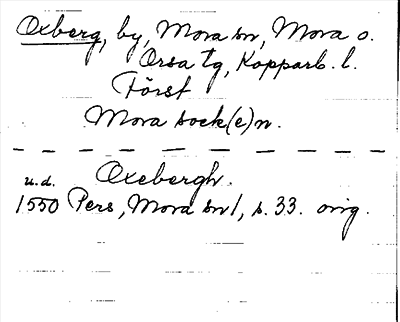 Oxberg, by, Mora sn, Mora o.
Orsa tg, Kopparb. l.
Först
Mora sock(e)n.
u.d. Oxebergh.
1550 Pers, Mora sn 1, s. 33. orig.